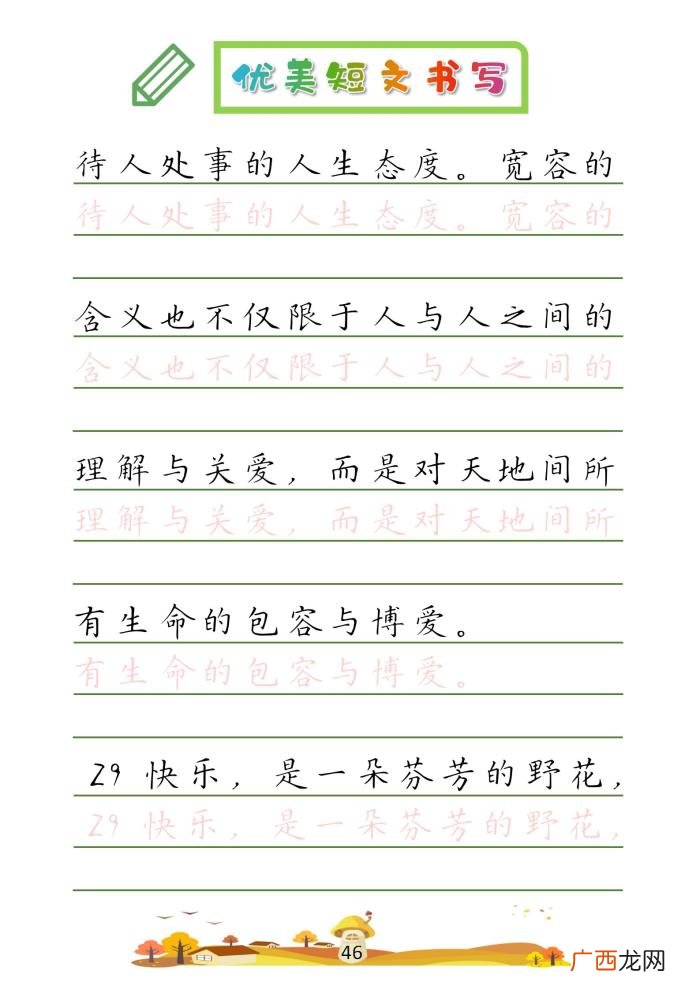 优美短文书写
待人处事的人生态度。宽容的
待人处事的人生态度。宽容的
含义也不仅限于人与人之间的
含义也不仅限于人与人之间的
理解与关爱，而是对天地间所
理解与关爱，而是对天地间所
有生命的包容与博爱。
有生命的包容与博爱。
29 快乐，是一朵芬芳的野花，
29 快乐，是一朵芬芳的野花，
46
广西龙网